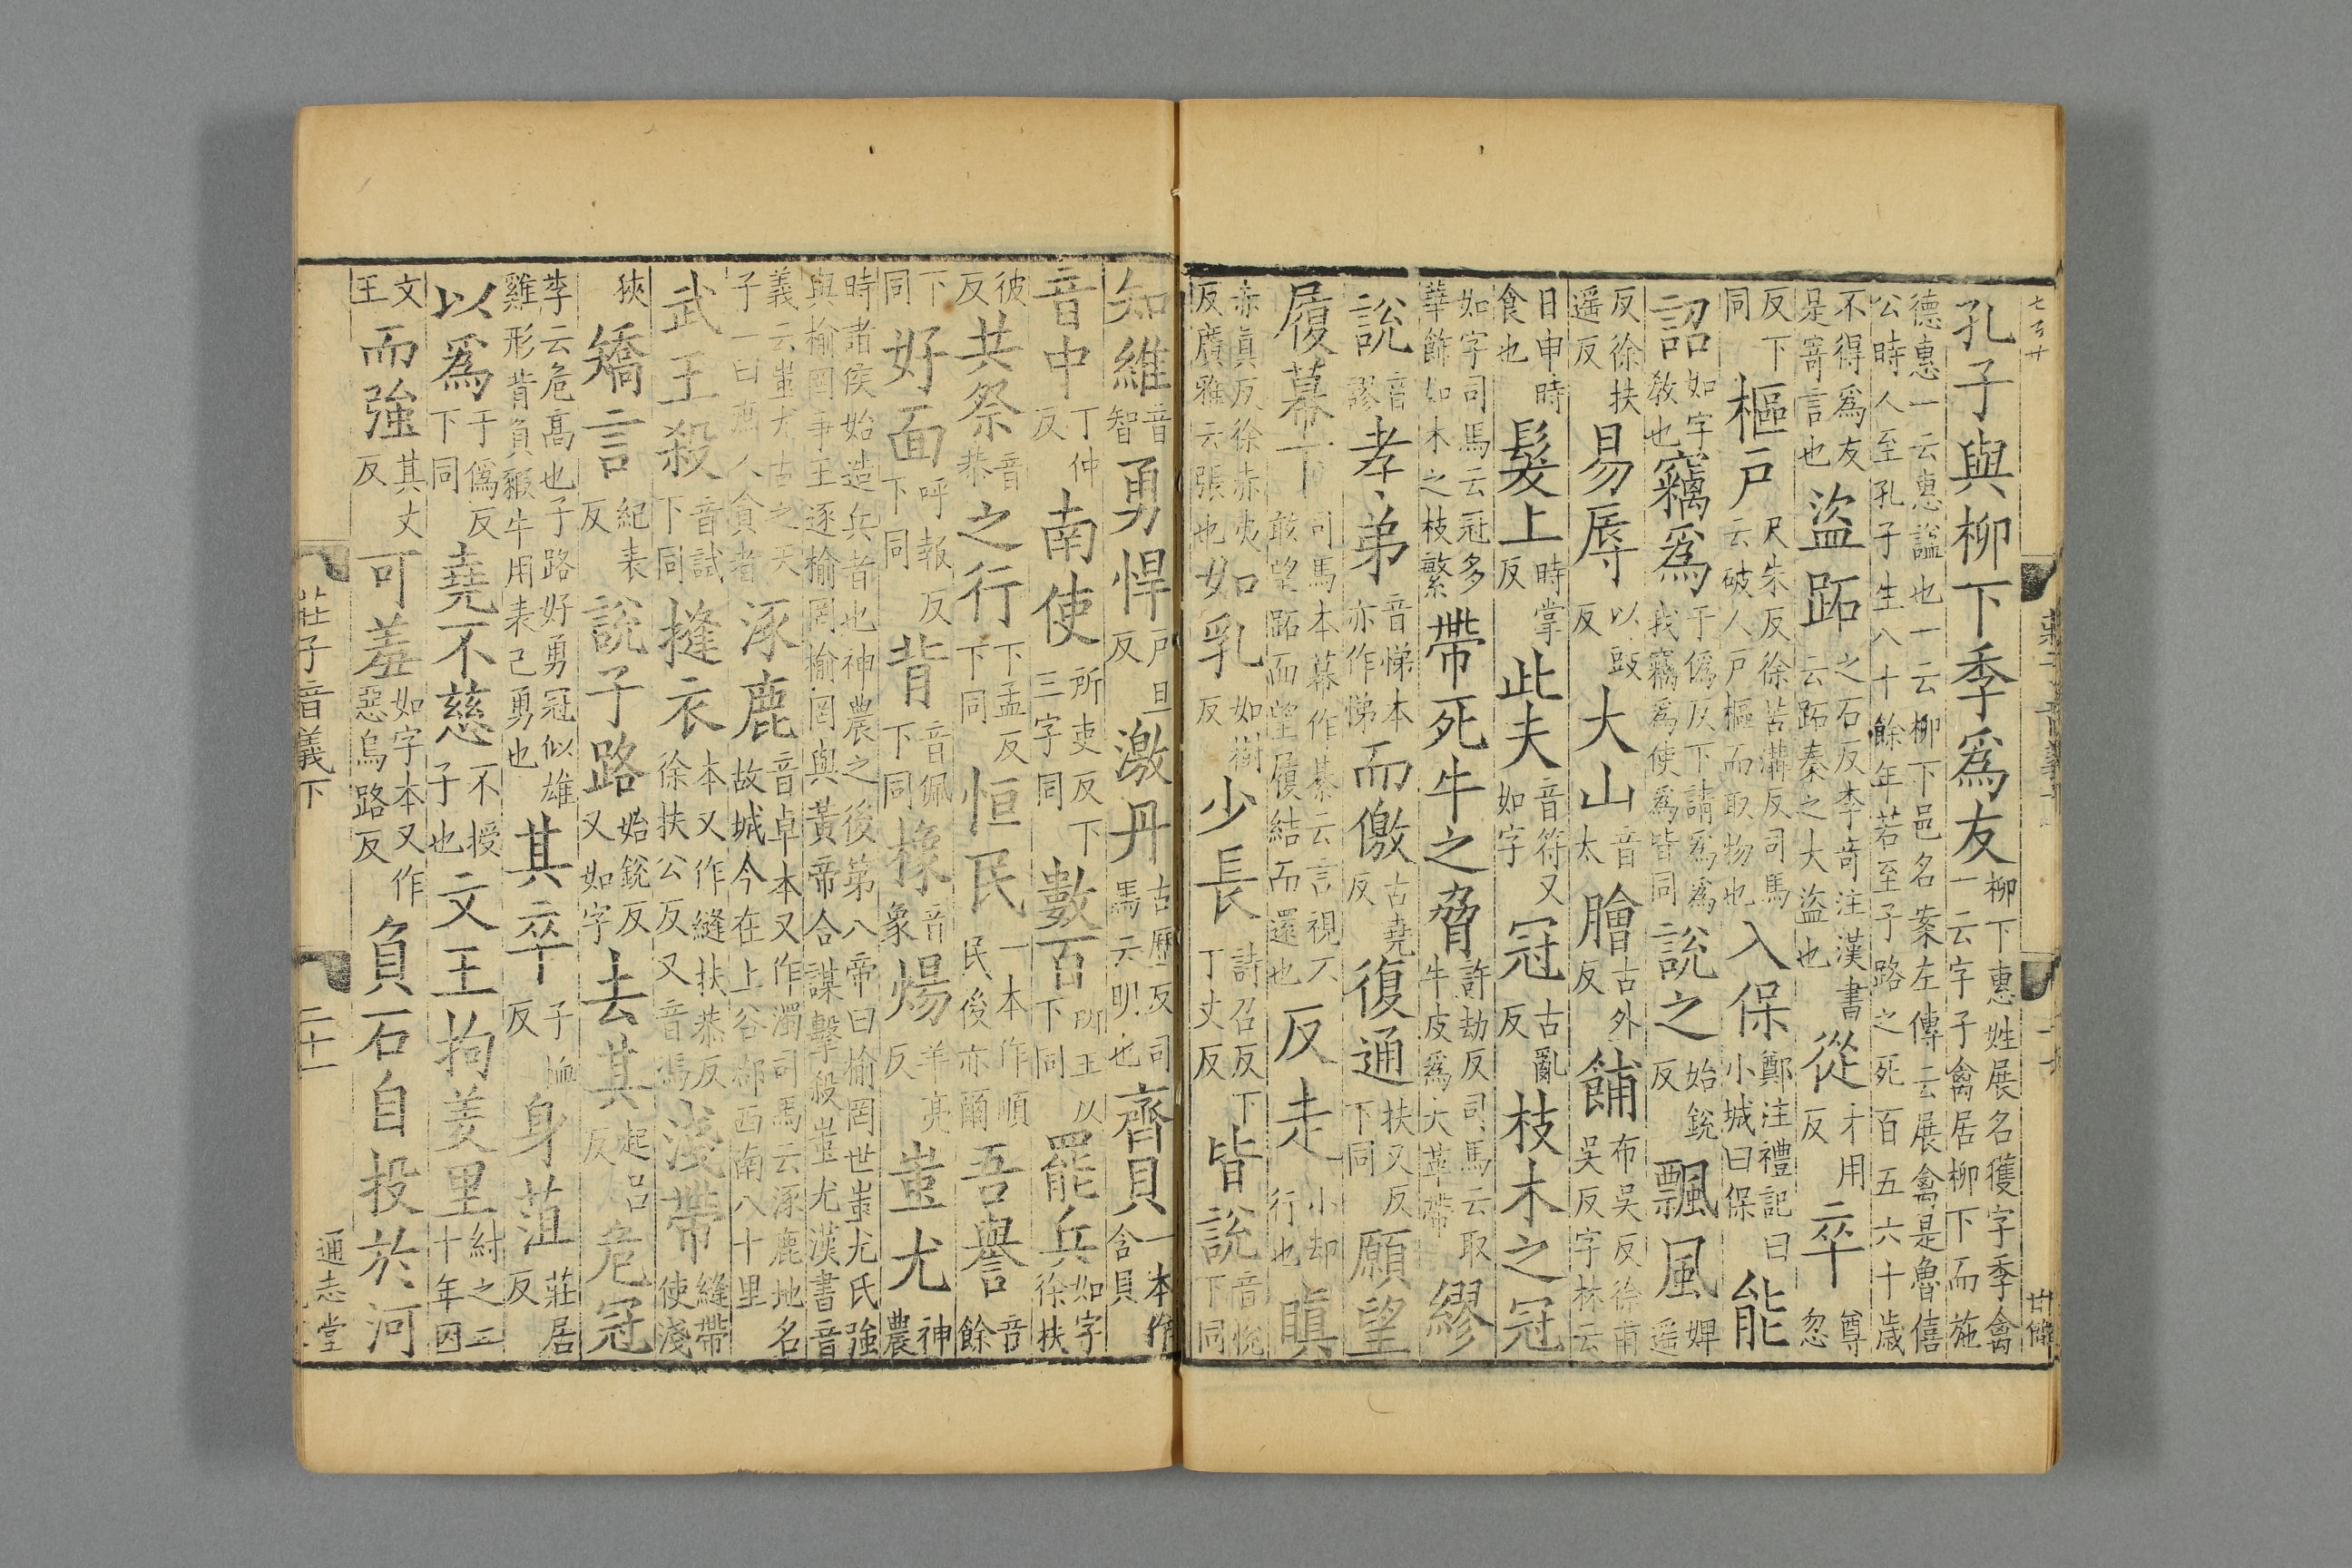 孔子與柳下季爲友柳下惠姓展名獲字季禽一云字子禽居柳下而施
德惠一云惠謚也一云柳下邑名案左傳云展禽是魯僖公時人至孔子生八十餘年若至子路之死百五六十歳
不得爲友是寄言也盜跖之石反李奇注漢書云跖秦之大盜也從才用反卒尊忽
反下同樞戶尺朱反徐苦溝反司馬云破人戶樞而取物也入保鄭注禮記曰小城曰保能
詔如字教也竊爲于僞反下請爲爲我竊爲使爲皆同說之始銳反飄風婢遥
反徐扶遥反易辱以豉反大山音太膾古外反餔布吳反徐甫吳反字林云
日申時食也髮上時掌反此夫音符又如字冠古亂反枝木之冠
如字司馬云冠多華飾如木之枝繁帶死牛之脅許劫反司馬云取牛皮爲大革帶繆
說音謬孝弟音悌本亦作悌而儌古堯反復通扶又反下同願望
履幕下司馬本幕作綦云言視不敢望跖而望履結而還也反走小却行也瞋
赤真反徐赤夷反廣雅云張也如乳如樹反少長詩召反下丁丈反皆說音悅下同
知維音智勇悍戶旦反激丹古歷反司馬云明也齊貝一本作含貝
音中丁仲反南使所吏反下三字同數百所主以下同罷兵如字徐扶
彼反共祭音恭之行下孟反下同恒民一本作順民後亦爾吾譽音餘
下同好面呼報反下同背音佩下同橡音象煬羊亮反蚩尤神農
時諸侯始造兵者也神農之後第八帝曰榆罔世蚩尤氏強與榆罔爭王逐榆罔榆罔與黃帝合謀擊殺蚩尤漢書音
義云蚩尤古之天子一曰庶人貪者涿鹿音卓本又作濁司馬云涿鹿地名故城今在上谷郡西南八十里
武王殺音試下同撻衣本又作縫扶恭反徐扶公反又音馮淺帶縫帶使淺
狹矯言紀表反說子路始銳反又如字去其起呂反危冠
李云危高也子路好勇冠似雄雞形背負豭牛用表己勇也其卒子恤反身菹莊居反
以爲于僞反下同堯不慈不授子也文王拘羑里紂之二十年囚
文王而強其丈反可羞如字本又作惡烏路反負石自投於河
莊子音義下
二十一
通志堂